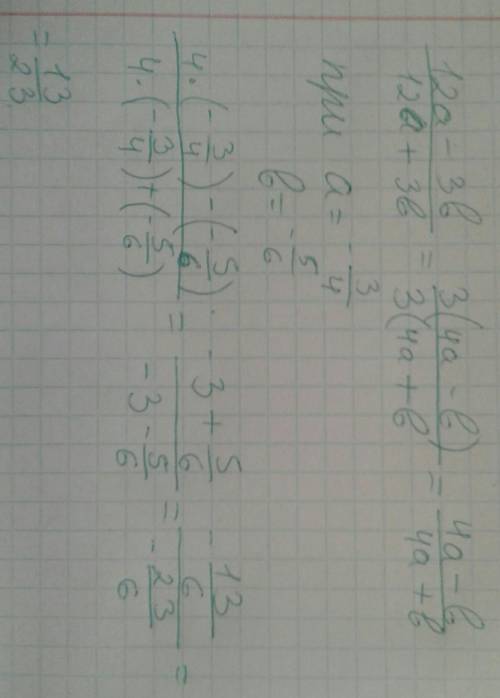 (12a - 3b)/(12a + 3b) = 3(4a - b)/3(4a + b) = (4a - b)/(4a + b)
при a = -3/4
b = -5/6
(4·(-3/4) - (-5/6))/(4·(-3/4) + (-5/6)) = (-3 + 5/6)/(-3 - 5/6) = (-13/6)/(-23/6) =
= 13/23